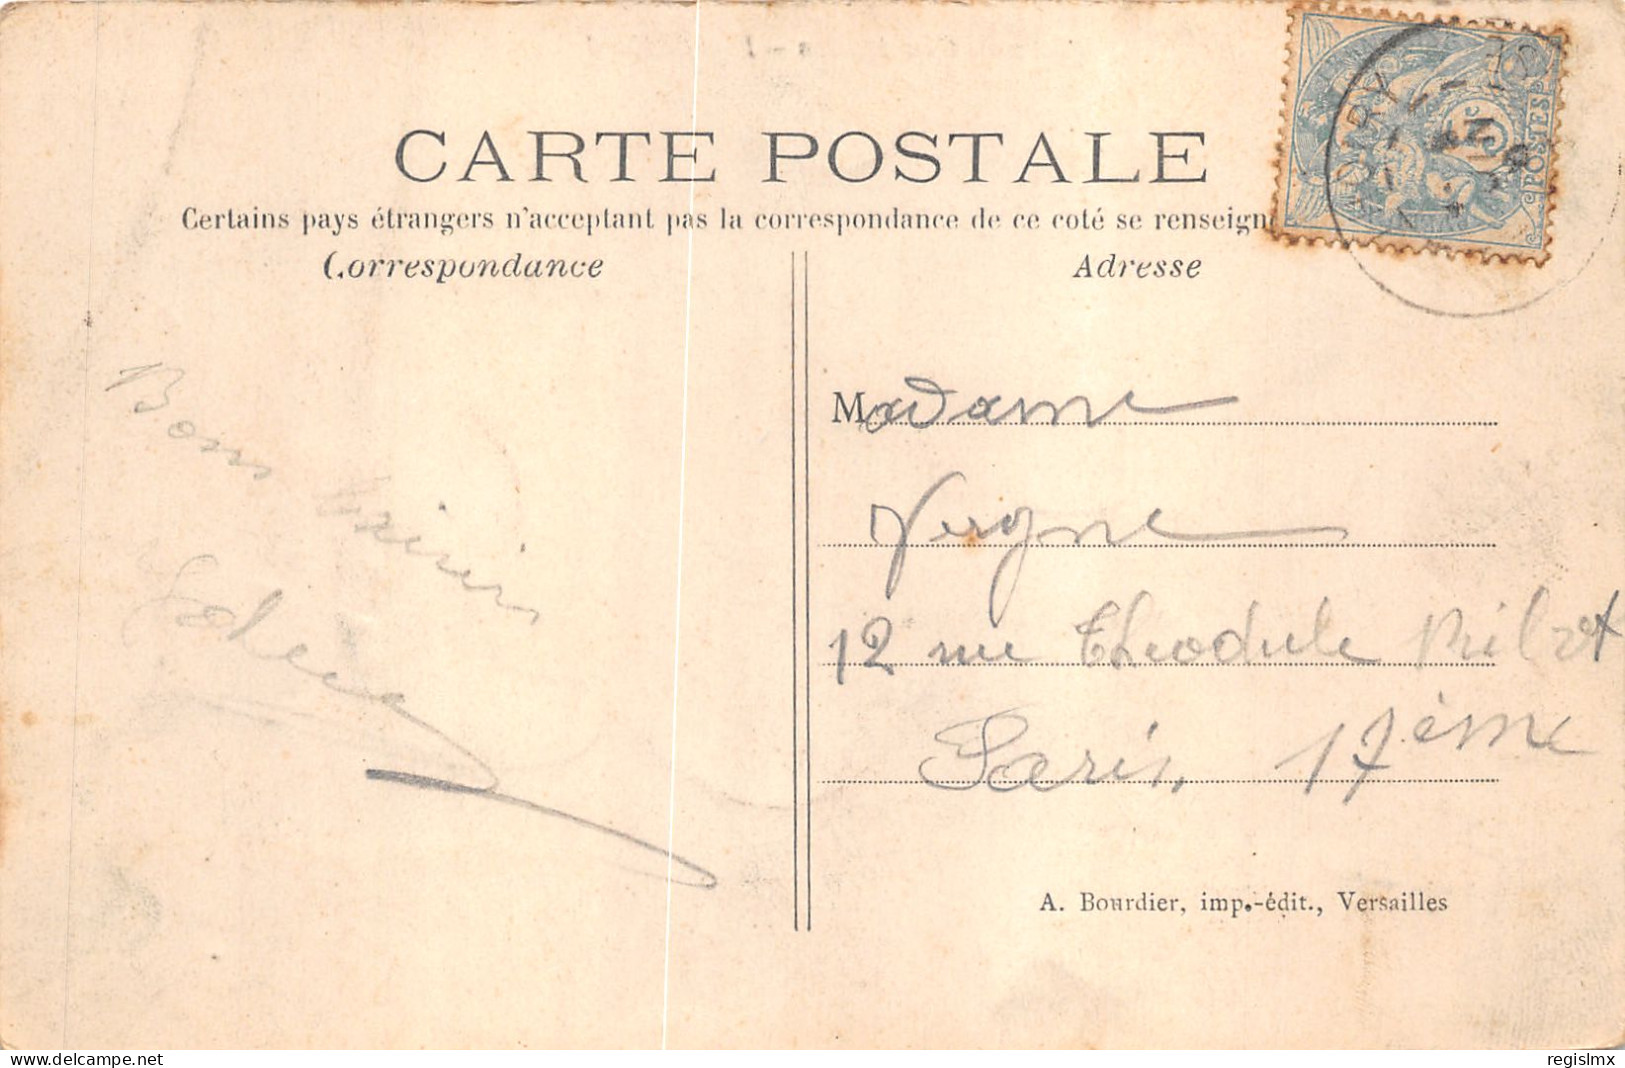 CARTE POSTALE
Certains pays étrangers n'acceptant pas la correspondance de ce coté se renseign
Correspondance
Adresse
5c
POSTES
Bons
Madame
Vergne
12 rue Théodule Ribot
Paris, 17ème
A. Bourdier, imp.-édit., Versailles
delcampe.net
regislmx